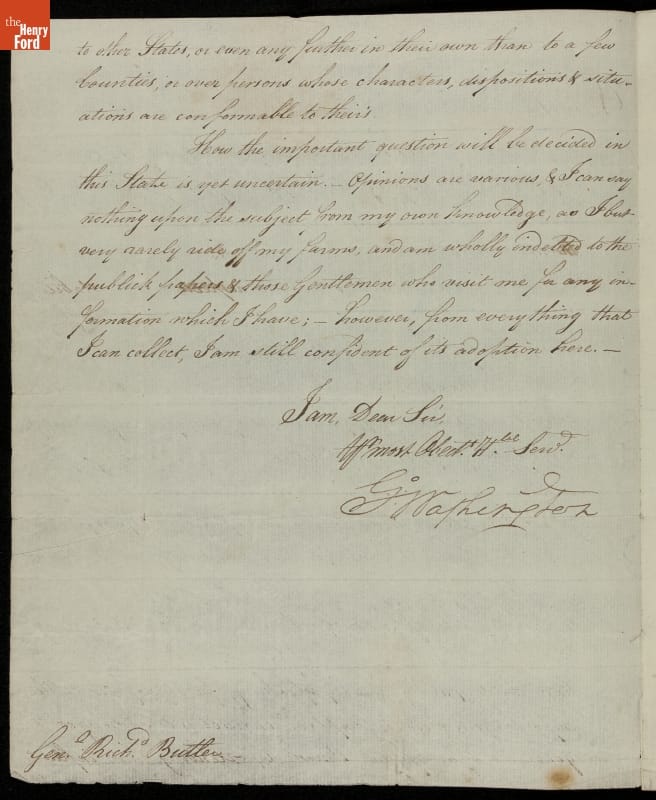 the
Henry
Ford
to other States, or even any further in their own than to a few
Counties, or over persons whose characters, dispositions & situ-
ations are conformable to their's
How the important question will be decided in
this State is yet uncertain. — Opinions are various, & I can say
nothing upon the subject from my own knowledge, as I but
very rarely ride off my farms, and am wholly indebted to the
publick papers & those Gentlemen who visit me for any in-
formation which I have; — however, from everything that
I can collect, I am still confident of its adoption here. —
I am, Dear Sir,
Yr most Obedt. Hble Servt.
Go: Washington
Genl. Richd. Butler —